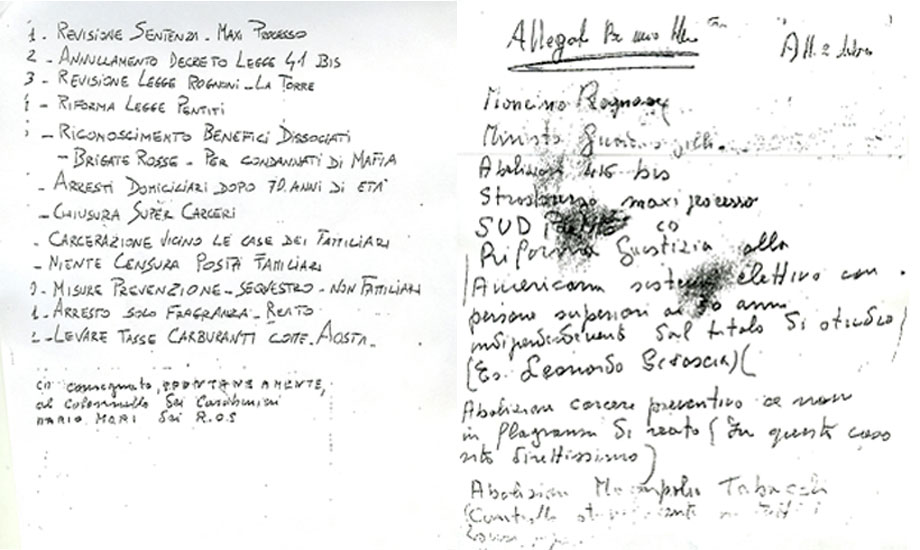 1. REVISIONE SENTENZA - MAXI PROCESSO
2 - ANNULLAMENTO DECRETO LEGGE 41 BIS
3 - REVISIONE LEGGE ROGNONI - LA TORRE
- RIFORMA LEGGE PENTITI
- RICONOSCIMENTO BENEFICI DISSOCIATI
- BRIGATE ROSSE - PER CONDANNATI DI MAFIA
- ARRESTI DOMICILIARI DOPO 70 ANNI DI ETA'
- CHIUSURA SUPER CARCERI
- CARCERAZIONE VICINO LE CASE DEI FAMILIARI
- NIENTE CENSURA POSTA FAMILIARI
- MISURE PREVENZIONE - SEQUESTRO - NON FAMILIARI
- ARRESTO SOLO FRAGRANZA - REATO
- LEVARE TASSE CARBURANTI COME AOSTA
consegnato, SPONTANEAMENTE,
al colonnello dei Carabinieri
MARIO MORI dei R.O.S
Mancino Rognoni
Ministro
Abolizione 416 bis
Strasburgo maxi processo
SUD
Riforma Giustizia alla
Americana sistema elettivo con
persone superiori ai 50 anni
indipendentemente dal titolo di studio
(Es. Leonardo Sciascia)
Abolizione carcere preventivo se non
in flagranza di reato (In questo caso
rito direttissimo)
Abolizione Monopolio Tabacchi